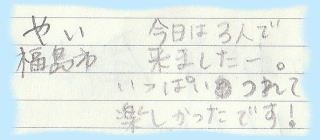 やい 今日は3人で
福島市 来ましたー。
いっぱいつれて
楽しかったです!